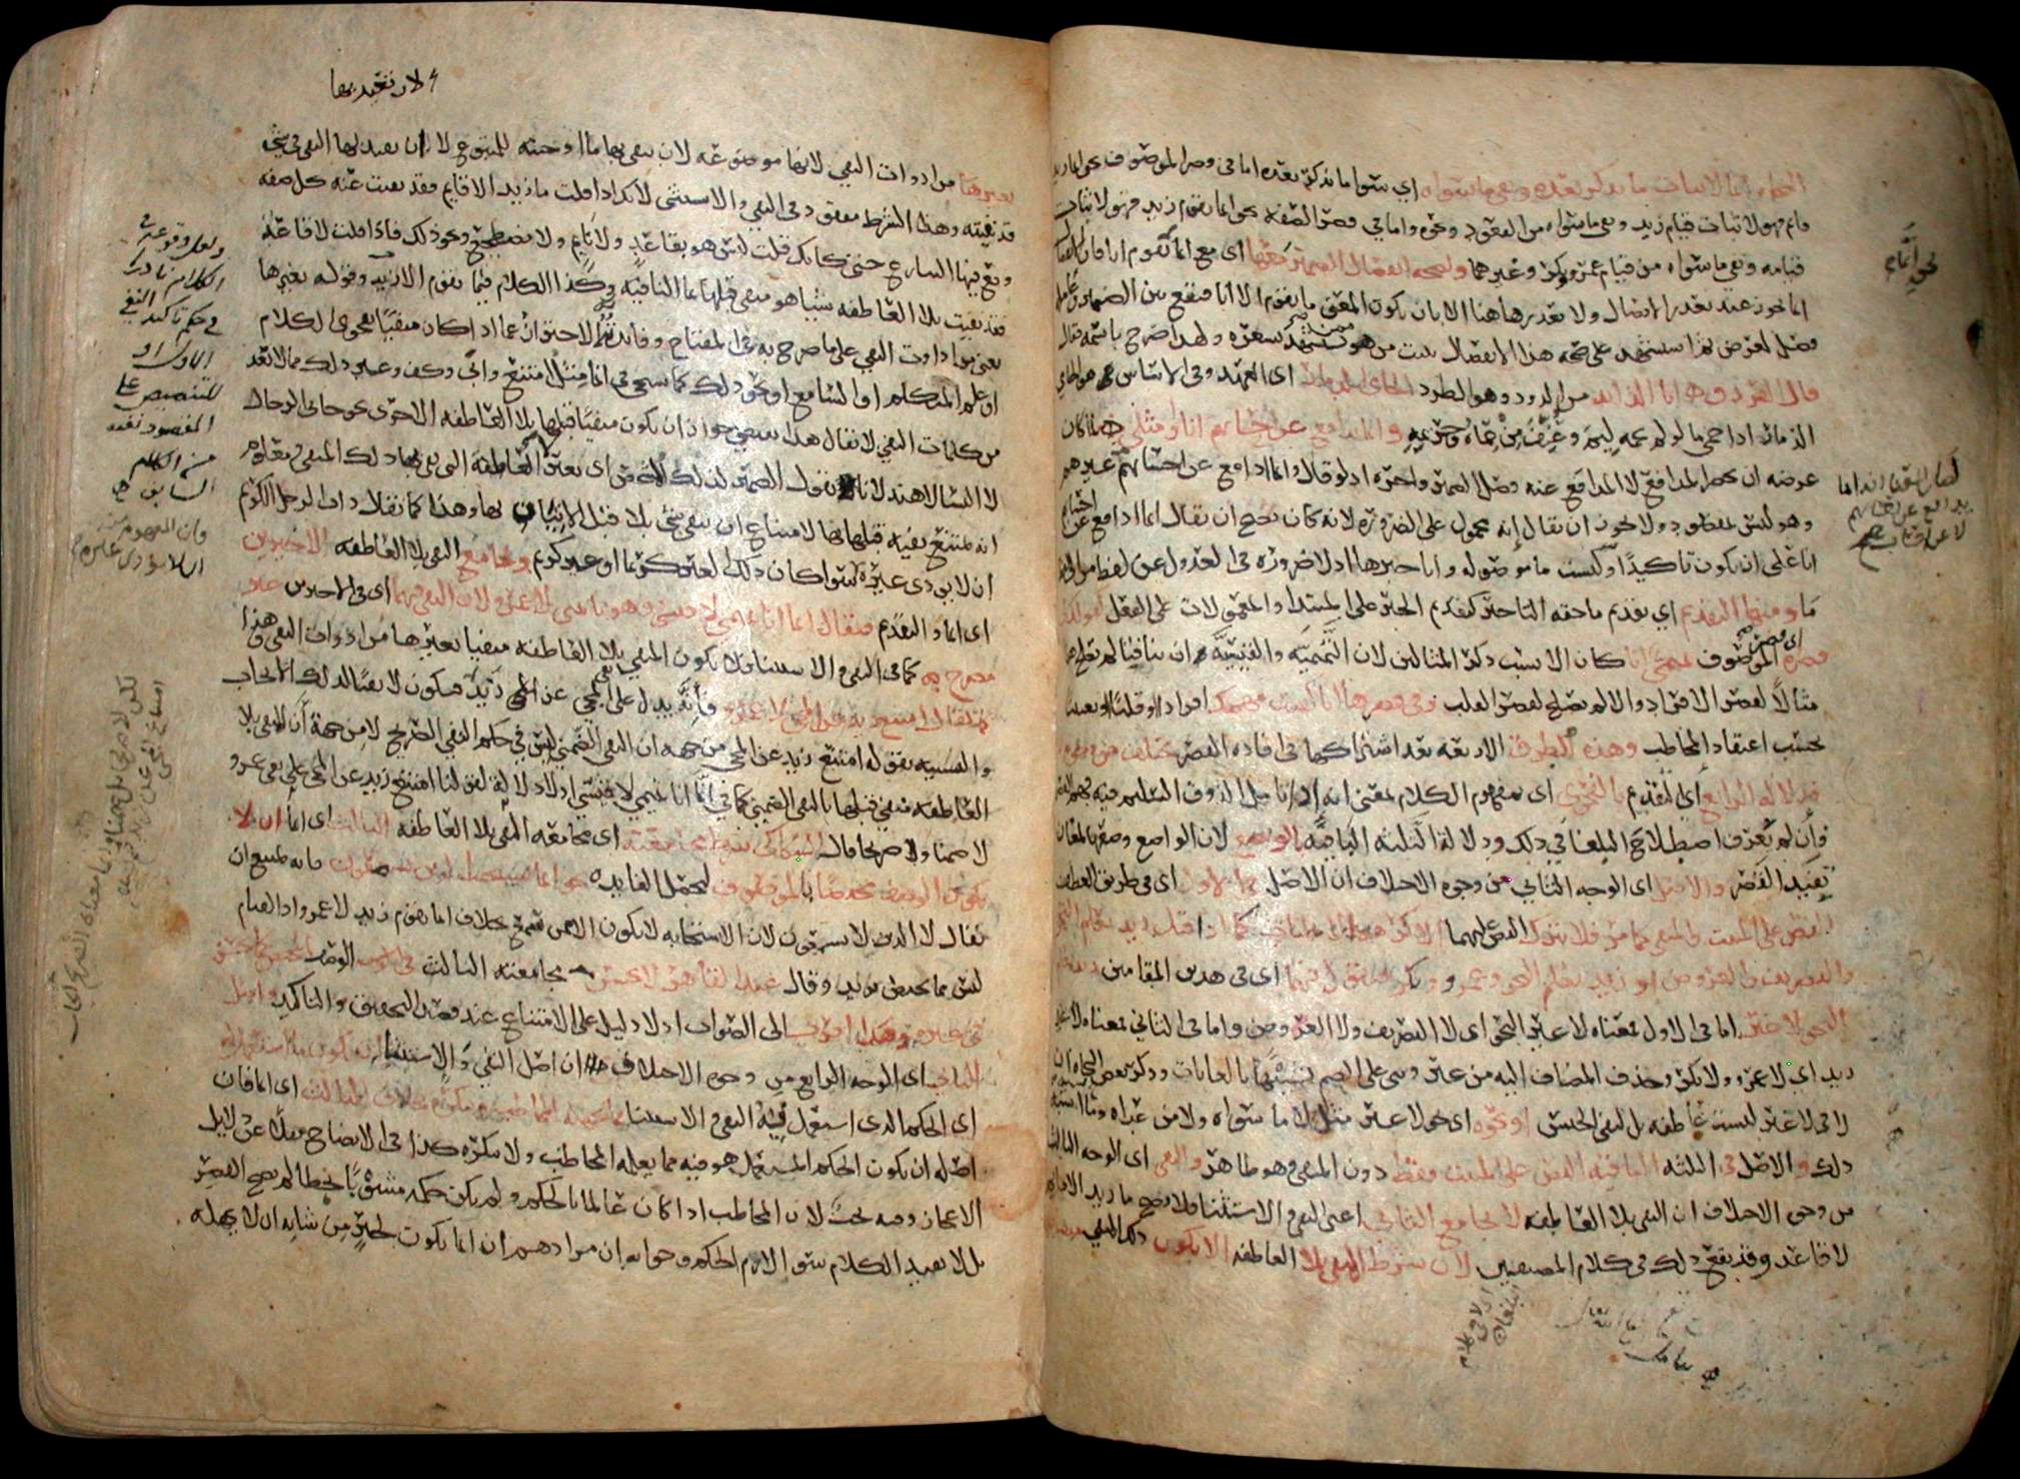 النحاة انما لاثبات ما يذكر بعده ونفي ما سواه اي سوى ما يذكر بعده اما في قصر الموصوف نحو انما زيد
قائم فهو لاثبات قيام زيد ونفي ما سواه من القعود ونحوه واما في قصر الصفة نحو انما يقوم زيد فهو لاثبات
قيامه ونفي ما سواه من قيام عمرو وبكر وغيرهما ولصحة انفصال الضمير معها اي مع انما نحو انما يقوم انا فان الانفصال
انما يجوز عند تعذر الاتصال ولا تعذر هاهنا الا بان يكون المعنى ما يقوم الا انا فيقع بين الضمير وعامله
فصل لغرض ثم استشهد على صحة هذا الانفصال ببيت من هو ممن يستشهد بشعره ولهذا صرح باسمه فقال
قال الفرزدق انا الذائد من الذود وهو الطرد الحامي الذمار اي العهد وفي الاساس هو الحامي
الذمار اذا حمى ما لو لم يحمه ليم وعنف من حماه وحريمه وانما يدافع عن احسابهم انا او مثلي لما كان
غرضه ان يحصر المدافع لا المدافع عنه فصل الضمير واخره اذ لو قال وانما ادافع عن احسابهم
وهو ليس بمقصوده ولا يجوز ان يقال إنه محمول على الضرورة لانه كان يصح ان يقال انما ادافع عن احسابهم
انا على ان يكون تاكيدًا وليست ما موصولة وانا خبرها اذ لا ضرورة في العدول عن لفظ من الى لفظ
ما ومنها التقديم اي تقديم ما حقه التاخير كتقديم الخبر على المبتدا والمعمولات على الفعل كقولك
في قصره اي قصر الموصوف تميمي انا كان الانسب ذكر المثالين لان التميمية والقيسية ان تنافيا لم يصلح هذا
مثالاً لقصر الافراد والا لم يصلح لقصر القلب وفي قصرها انا كفيت مهمك افرادا او قلبًا او تعيينًا
بحسب اعتقاد المخاطب وهذه الطرق الاربعة بعد اشتراكها في افادة القصر تختلف من وجوه
فدلالة الرابع أي التقديم بالفحوى اي بمفهوم الكلام بمعنى انه اذا تامل الذوق السليم فيه فهم القصر
وان لم يعرف اصطلاح البلغا في ذلك ودلالة الثلثة الباقية بالوضع لان الواضع وضعها لمعان
تفيد القصر والاصل اي الوجه الثاني من وجوه الاختلاف ان الاصل في الاول اي في طريق العطف
النص على المثبت والمنفي كما مر فلا يترك النص عليهما الا لكراهة الاطناب كما اذا قيل زيد يعلم النحو
والتصريف والعروض او زيد يعلم النحو وعمرو وبكر فتقول فيهما اي في هذين المقامين زيد يعلم
النحو لا غير اما في الاول فمعناه لا غير النحو اي لا التصريف ولا العروض واما في الثاني فمعناه لا غير
زيد اي لا عمرو ولا بكر وحذف المضاف اليه من غير وبني على الضم تشبيهًا بالغايات وذكر بعض النحاة ان
لا في لا غير ليست عاطفة بل لنفي الجنس او نحوه اي نحو لا غير مثل لا ما سواه ولا من عداه وما اشبه
ذلك والاصل في الثلثة الباقية النص على المثبت فقط دون المنفي وهو ظاهر والنفي اي الوجه الثالث
من وجوه الاختلاف ان النفي بلا العاطفة لا يجامع الثاني اعني النفي والاستثنا فلا يصح ما زيد الا قائم
لا قاعد وقد يقع ذلك في كلام المصنفين لان شرط المنفي بلا العاطفة الا يكون ذلك المنفي منفيا
نحو انا
لا عن احسابهم
لان تفيد بها
بغيرها من ادوات النفي لانها موضوعة لان تنفي بها ما اوجبته للمتبوع لا لان تعيد بها النفي في شي
قد نفيته وهذا الشرط مفقود في النفي والاستثنى لانك اذا قلت ما زيد الا قايم فقد نفيت عنه كل صفة
وقع فيها التنازع حتى كانك قلت ليس هو بقاعد ولا نايم ولا مضطجع ونحو ذلك فاذا قلت لا قاعد
فقد نفيت بلا العاطفة شيا هو منفي قبلها بما النافية وكذا الكلام فيما يقوم الا زيد وقوله بغيرها
يعني من ادوات النفي على ما صرح به في المفتاح وفائدته الاحتراز عما اذا كان منفيًا بفحوى الكلام
او علم المتكلم او السامع او نحو ذلك كما سيجي في انما مثل امتنع وأبى وكف وغير ذلك مما لا يعد
من كلمات النفي لا يقال هذا يقتضي جواز ان يكون منفيًا قبلها بلا العاطفة الاخرى نحو جاني الرجال
لا النسا لا هند لانا نقول الضمير لذلك المشخص اي بغير لا العاطفة التي نفي بها ذلك المنفي ومعلوم
انه يمتنع نفيه قبلها بها لامتناع ان ينفى شي بلا قبل الاتيان بها وهذا كما يقال داب الرجل الكريم
ان لا يوذي غيره سواء كان ذلك الغير كريما او غير كريم ويجامع النفي بلا العاطفة الاخيرين
اي انما والتقديم فيقال انما انا تميمي لا قيسي وهو ياتيني لا عمرو لان النفي فيهما اي في الاخيرين غير
مصرح به كما في النفي والاستثنا فلا يكون المنفي بلا العاطفة منفيا بغيرها من ادوات النفي وهذا
كما يقال امتنع زيد عن المجي لا عمرو فانه يدل على نفي المجي عن زيد فيكون لا نفيًا لذلك الايجاب
والتشبيه بقوله امتنع زيد عن المجي من جهة ان النفي الضمني ليس في حكم النفي الصريح لا من جهة أن المنفي بلا
العاطفة منفي قبلها بالنفي الضمني كما في انما انا تميمي لا قيسي اذ لا دلالة لقولنا امتنع زيد عن المجي على نفي عمرو
لا ضمنا ولا صريحا قال السكاكي شرط مجامعته اي مجامعة النفي بلا العاطفة الثالث اي انما ان لا
يكون الوصف مختصًا بالموصوف لتحصل الفايدة نحو انما يستجيب الذين يسمعون فانه يمتنع ان
يقال لا الذين لا يسمعون لان الاستجابة لا يكون الا ممن يسمع بخلاف انما يقوم زيد لا عمرو اذ القيام
ليس مما يختص بزيد وقال عبد القاهر لا تحسن مجامعته الثالث في الوصف المختص كما تحسن
في غيره وهذا اقرب الى الصواب اذ لا دليل على الامتناع عند قصد التحقيق والتاكيد واصل
الثاني اي الوجه الرابع من وجوه الاختلاف ان اصل النفي والاستثنا ان يكون ما استعمل له
اي الحكم الذي استعمل فيه النفي والاستثنا مما يجهله المخاطب وينكره بخلاف الثالث اي انما فان
اصله ان يكون الحكم المستعمل هو فيه مما يعلمه المخاطب ولا ينكره كذا في الايضاح نقلا عن دلايل
الاعجاز وفيه بحث لان المخاطب اذا كان عالما بالحكم ولم يكن حكمه مشوبًا بخطا لم يصح القصر
بل لا يفيد الكلام سوى لازم الحكم وجوابه ان مرادهم ان انما يكون لخبر من شانه ان لا يجهله
ولعل وقوعه في
الكلام نادرا
في حكم تاكيد النفي
الاول او
للتنصيص على
المقصود نفيه
من الكلام
السابق